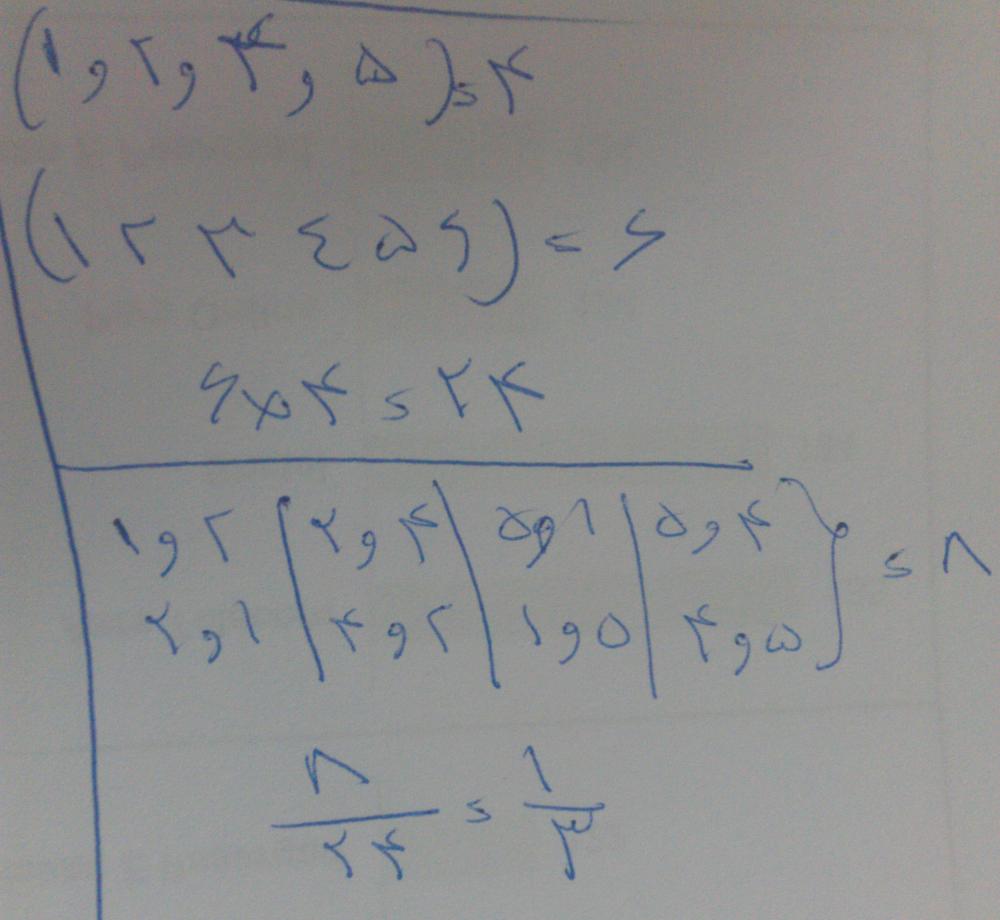 (۱ , ۲ , ۴ , ۵) = ۴
(۱ ۲ ۳ ٤ ۵ ۶) = ۶
۶ × ۴ = ۲۴
۱ و ۲ | ۲ و ۴ | ۵ و ۱ | ۵ و ۴ } = ۸
۲ و ۱ | ۴ و ۲ | ۱ و ۵ | ۴ و ۵
۸/۲۴ = ۱/۳